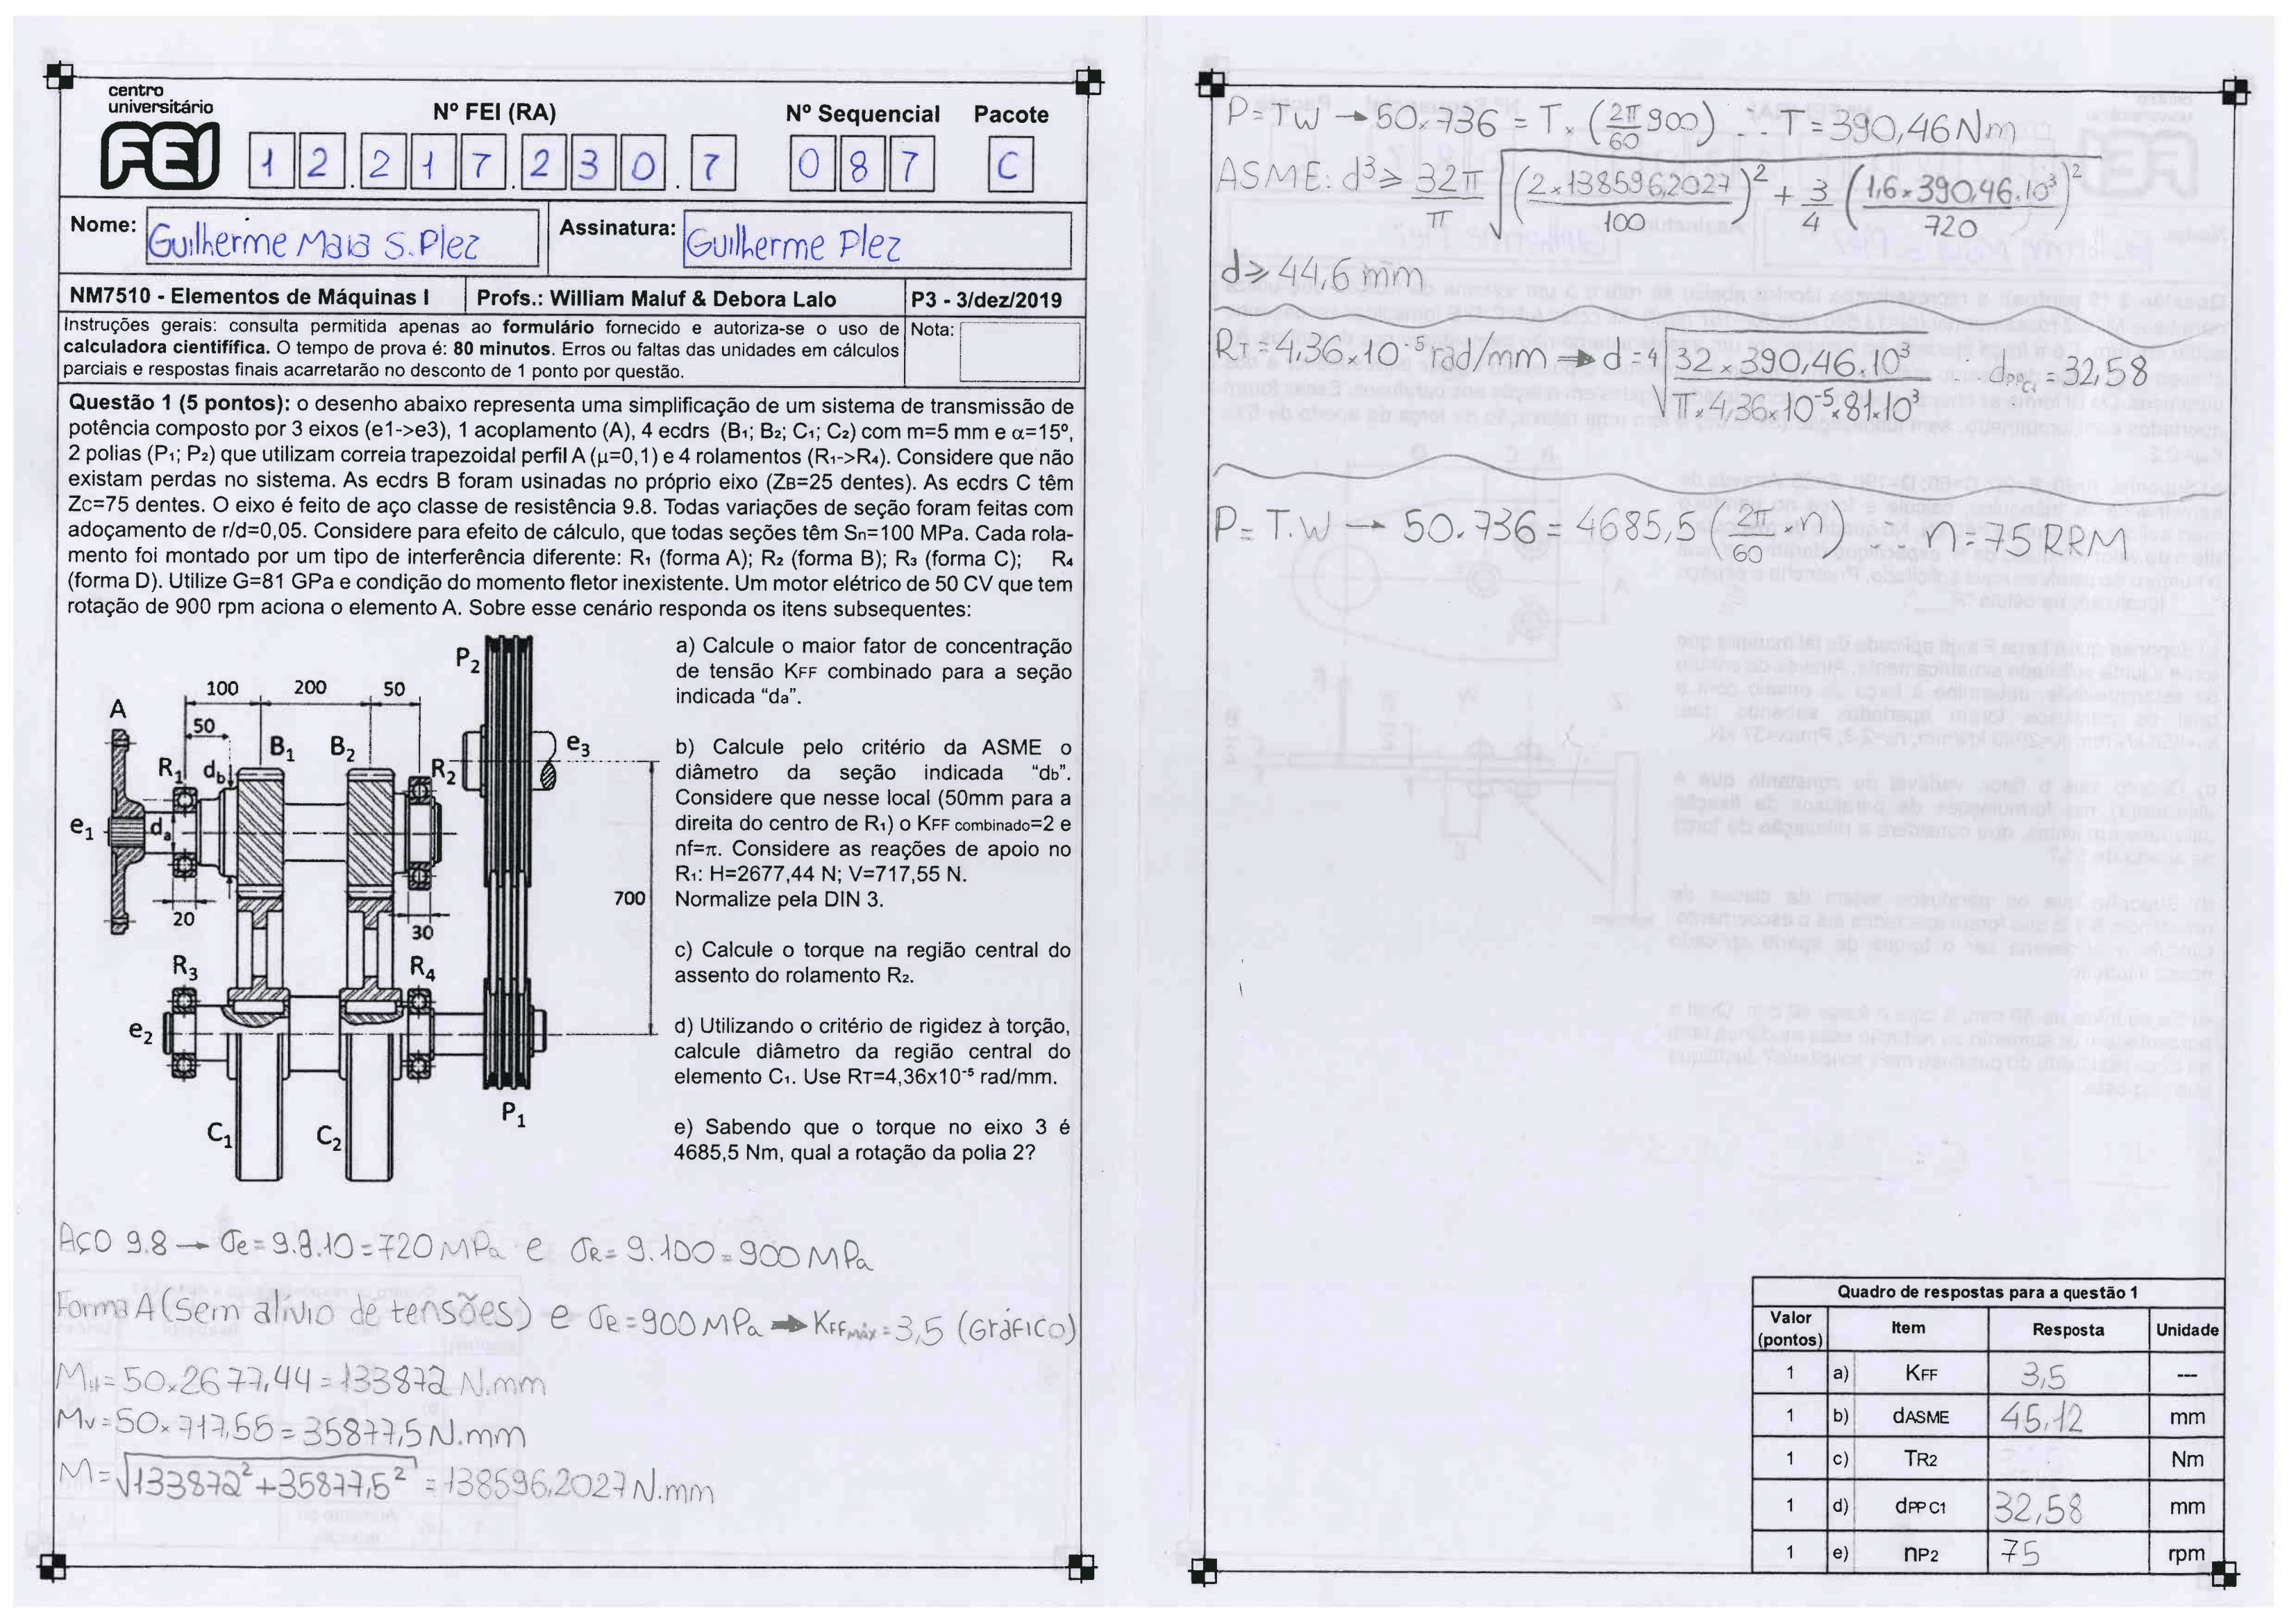 centro
universitário
FEI
Nº FEI (RA)
Nº Sequencial
Pacote
12.217.230.7
087
C
Nome: Guilherme Maia S. Plez
Assinatura: Guilherme Plez
NM7510 - Elementos de Máquinas I
Profs.: William Maluf & Debora Lalo
P3 - 3/dez/2019
Instruções gerais: consulta permitida apenas ao formulário fornecido e autoriza-se o uso de
calculadora cientifífica. O tempo de prova é: 80 minutos. Erros ou faltas das unidades em cálculos
parciais e respostas finais acarretarão no desconto de 1 ponto por questão.
Nota:
Questão 1 (5 pontos): o desenho abaixo representa uma simplificação de um sistema de transmissão de
potência composto por 3 eixos (e1->e3), 1 acoplamento (A), 4 ecdrs (B₁; B₂; C₁; C₂) com m=5 mm e α=15º,
2 polias (P₁; P₂) que utilizam correia trapezoidal perfil A (µ=0,1) e 4 rolamentos (R₁->R₄). Considere que não
existam perdas no sistema. As ecdrs B foram usinadas no próprio eixo (ZB=25 dentes). As ecdrs C têm
Zc=75 dentes. O eixo é feito de aço classe de resistência 9.8. Todas variações de seção foram feitas com
adoçamento de r/d=0,05. Considere para efeito de cálculo, que todas seções têm Sn=100 MPa. Cada rola-
mento foi montado por um tipo de interferência diferente: R₁ (forma A); R₂ (forma B); R₃ (forma C); R₄
(forma D). Utilize G=81 GPa e condição do momento fletor inexistente. Um motor elétrico de 50 CV que tem
rotação de 900 rpm aciona o elemento A. Sobre esse cenário responda os itens subsequentes:
P₂
100 200 50
A
50
B₁ B₂ e₃
R₁ db R₂
e₁ da
700
20 30
R₃ R₄
e₂
P₁
C₁ C₂
a) Calcule o maior fator de concentração
de tensão KFF combinado para a seção
indicada “da”.
b) Calcule pelo critério da ASME o
diâmetro da seção indicada “db”.
Considere que nesse local (50mm para a
direita do centro de R₁) o KFF combinado=2 e
nf=π. Considere as reações de apoio no
R₁: H=2677,44 N; V=717,55 N.
Normalize pela DIN 3.
c) Calcule o torque na região central do
assento do rolamento R₂.
d) Utilizando o critério de rigidez à torção,
calcule diâmetro da região central do
elemento C₁. Use RT=4,36x10⁻⁵ rad/mm.
e) Sabendo que o torque no eixo 3 é
4685,5 Nm, qual a rotação da polia 2?
Aço 9.8 → σe = 9.8.10 = 720 MPa e σR = 9.100 = 900 MPa
Forma A (sem alívio de tensões) e σR = 900 MPa → KFFmáx = 3,5 (Gráfico)
MH = 50x2677,44 = 133872 N.mm
Mv = 50x717,55 = 35877,5 N.mm
M = √133872² + 35877,5² = 138596,2027 N.mm
P = TW → 50x736 = T x (2π/60 900) ∴ T = 390,46 Nm
ASME: d³ ≥ 32π/π √(2x138596,2027/100)² + 3/4 (1,6x390,46.10³/720)²
d ≥ 44,6 mm
RT = 4,36x10⁻⁵ rad/mm → d = ⁴√32 x 390,46.10³/π x 4,36x10⁻⁵ x 81x10³ ∴ dPPC1 = 32,58
P = T.W → 50.736 = 4685,5 (2π/60 n) ∴ n = 75 RPM
Quadro de respostas para a questão 1
Valor (pontos) Item Resposta Unidade
1 a) KFF 3,5 ---
1 b) dASME 45,12 mm
1 c) TR2 Nm
1 d) dPP C1 32,58 mm
1 e) nP2 75 rpm